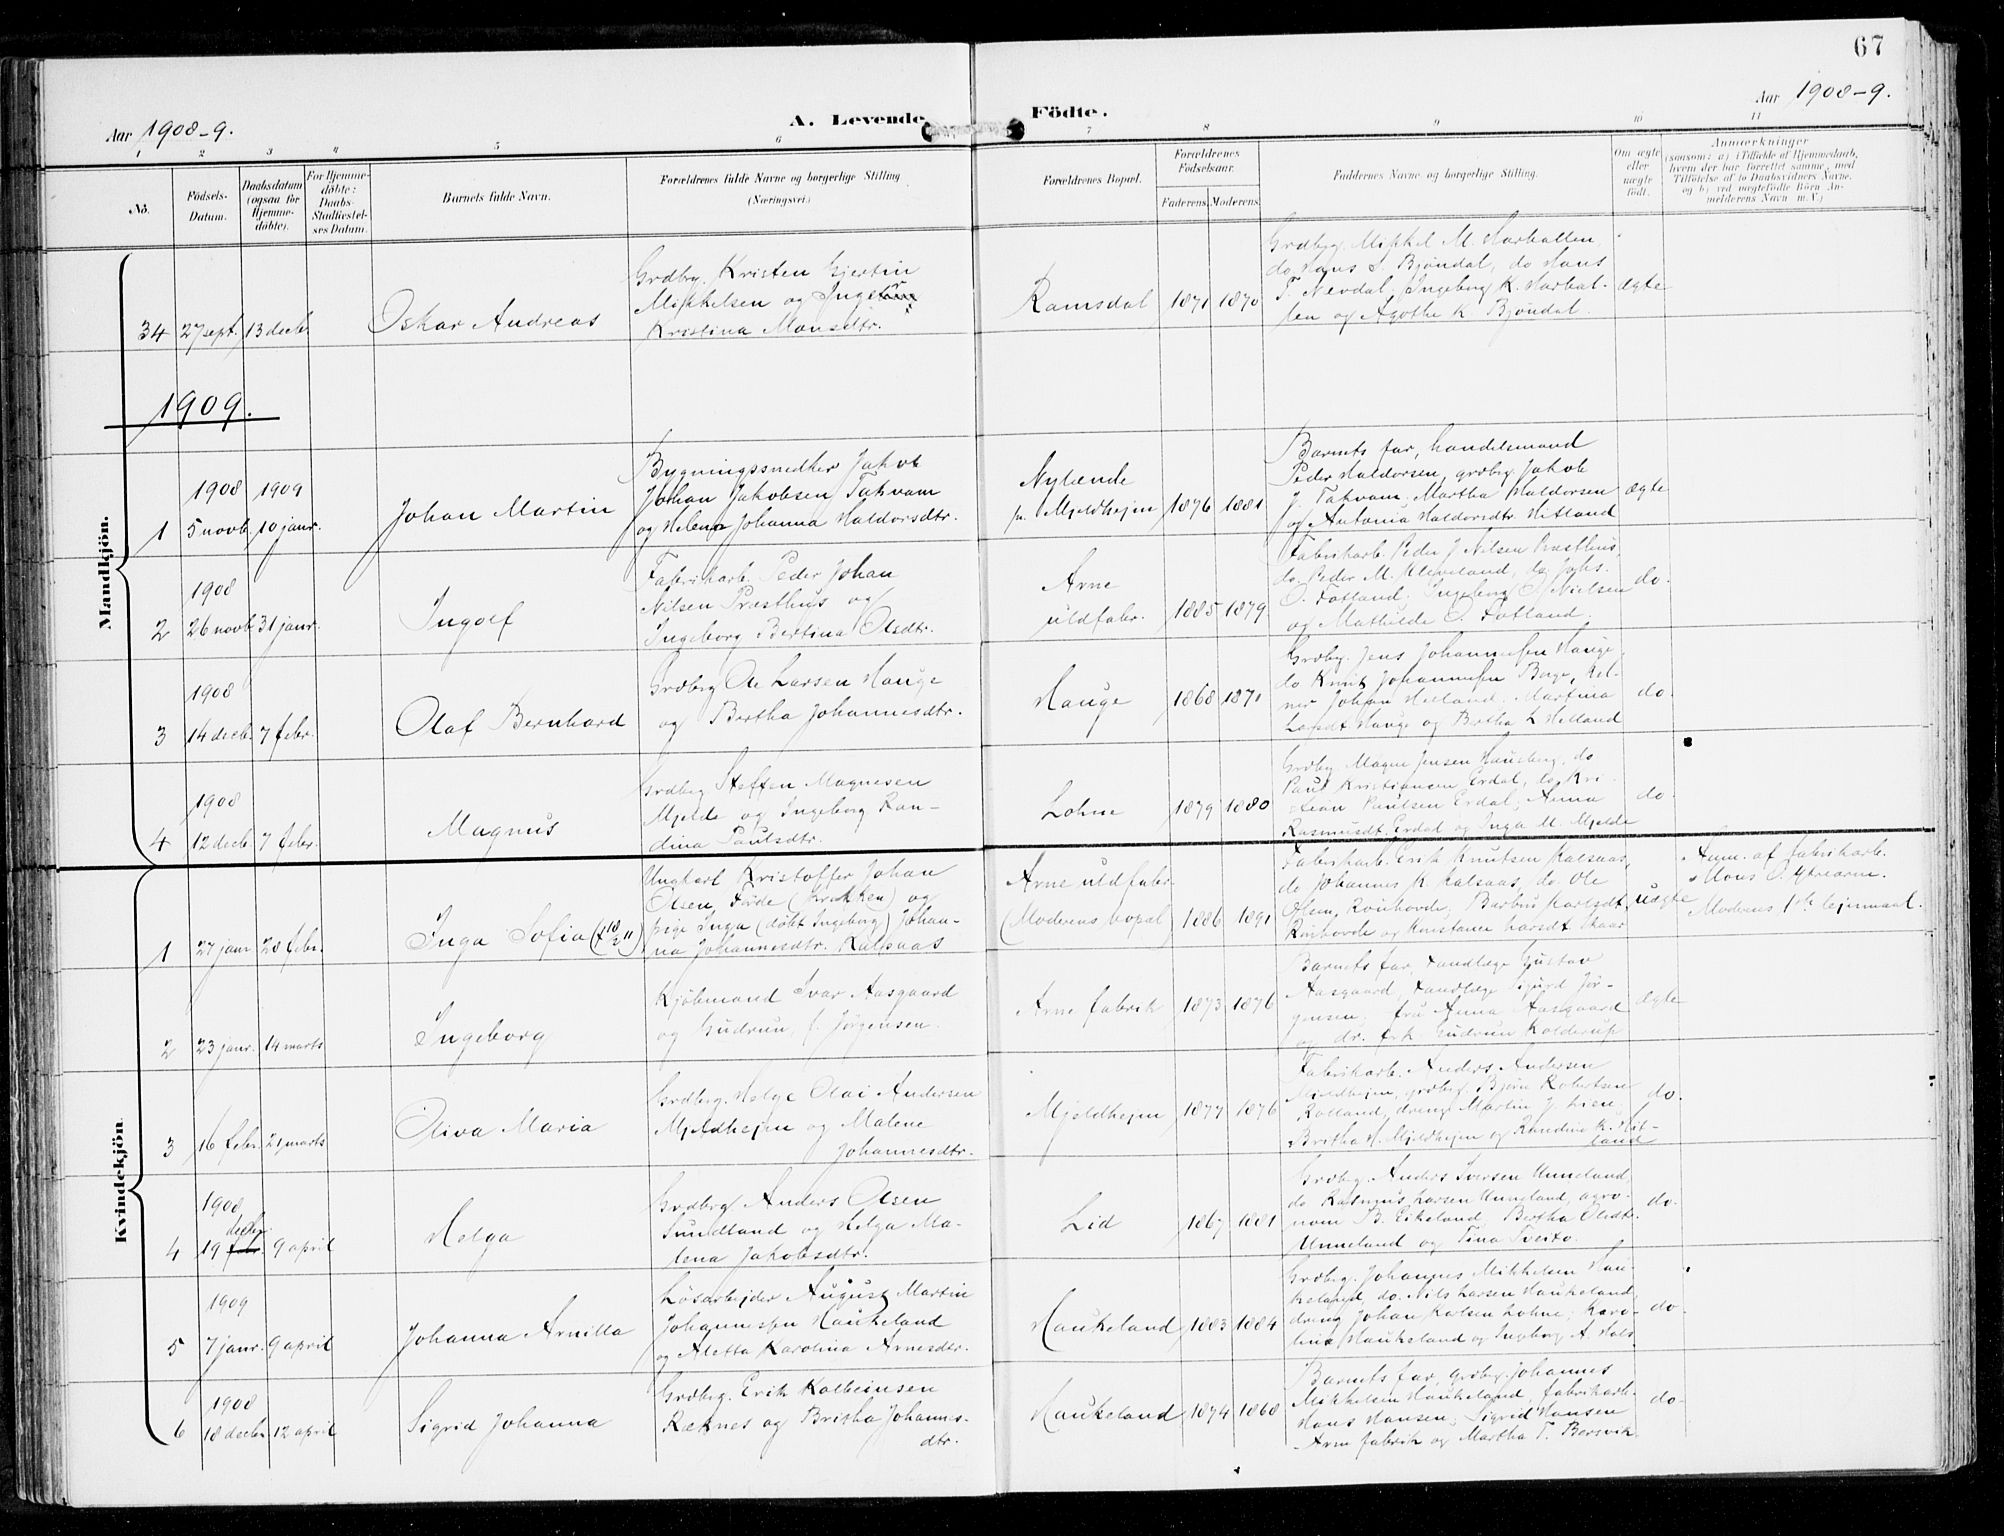 67
Aar 1908-9.
A. Levende
Födte.
Aar 1908-9.
1 2 3 4 5 6 7 8 9 10 11
No.
Födsels-
Datum.
Daabsdatum
(ogsaa for
Hjemme-
döbte).
For Hjemme-
döbte:
Daabs-
Stadfæstel-
ses Datum.
Barnets fulde Navn.
Forældrenes fulde Navne og borgerlige Stilling
(Næringsvei.)
Forældrenes Bopæl.
Forældrenes
Födselsaar.
Faderens. Moderens.
Faddernes Navne og borgerlige Stilling.
Om ægte
eller
uægte
födt.
Anmærkninger
(saasom: a) i Tilfælde af Hjemmedaab,
hvem der har forrettet samme, med
Tilföielse af to Daabsvidners Navne,
og b) ved uægtefödte Börn An-
melderens Navn m.V.)
Mandkjön.
34 27 sept. 13 decb.
Oskar Andreas
Grdbrg. Kristen Gjertin
Mikkelsen og Inge
Kristina Monsdtr.
Ramsdal
1871 1870
Grdbrg. Mikkel M. Harhallen,
do Hans J. Bjöndal, do Hans
T. Nevdal, Ingeborg K. Harhal-
len og Agothe K. Bjöndal.
ægte
1909.
1
1908
5 novb.
1909
10 janr.
Johan Martin
Bygningssnedker Jakob
Johan Jakobsen Takvam
og Helena Johanna Haldorsdtr.
Nylænde
p. Mjeldhejen
1876 1881
Barnets far, handelsmand
Peder Haldorsen, grdbrg. Jakob
J. Takvam. Martha Haldorsen
og Antonia Haldorsdtr. Hitland
ægte
2
1908
26 novb. 31 janr.
Ingolf
Fabrikarb. Peder Johan
Nilsen Præsthus og
Ingeborg Bertina Olsdtr.
Arne
uldfabr.
1885 1879
Fabrikarb. Peder J. Nilsen Præsthus,
do. Peder M. Kleveland, do Johs.
O. Totland. Ingeborg Nielsen
og Mathilde O. Totland.
do.
3
1908
14 decb. 7 febr.
Olaf Bernhard
Grdbrg Ole Larsen Hauge
og Bertha Johannesdtr.
Hauge
1868 1871
Grdbrg. Jens Johannessen Hauge,
do Knut Johannessen Borge, Kel-
ner Johan Helland. Martina
Larsdt Hauge og Bertha L Helland
do.
4
1908
12 decb. 7 febr.
Magnus
Grdbrg Steffen Magnesen
Mjelde og Ingeborg Ran-
dina Paulsdtr.
Lohne
1879 1880
Grdbrg Magne Jensen Hausberg, do
Paul Kristiansen Erdal, do Kri-
stian Paulsen Erdal, Anna
Rasmusdt. Erdal og Inga M. Mjelde
do.
Kvindekjön
1 27 janr. 28 febr.
Inga Sofia († 18/2 11)
Ungkarl Kristoffer Johan
Olsen, Förde og
pige Inga (döbt Ingeborg) Johan-
na Johannesdtr. Kalsaas
Arne uldfabr.
(Moderens bopæl)
1886 1891
Fabrikarb. Erik Knutsen Kalsaas,
do Johannes K. Kalsaas, do. Ole
Olsen Rönhovde, Barbru Karlsdt.
Rönhovde og Konstance Larsdt Skaar
uægte
Anm. af fabrikarb.
Mons O. Ytrearne.
Moderens 1ste lejermaal.
2 23 janr. 14 marts
Ingeborg
Kjöbmand Ivar Aasgaard
og Gudrun, f. Jörgensen.
Arne fabrik
1873 1876
Barnets far, tandlæge Gustav
Aasgaard, tandlæge Sigurd Jör-
gensen, fru Anna Aasgaard
og dr. frk Gudrun Kolderup
ægte
3 16 febr. 21 marts
Oliva Maria
Grdbrg. Helge Olai Andersen
Mjeldhejen og Malene
Johannesdtr.
Mjeldhejen
1877 1876
Fabrikarb. Anders Andersen
Mjeldhejen, grdbrg. Björn Robertsen
Rolland, dreng Martin J. Lien.
Britha H. Mjeldhejen og Randine K. Hit-
land
do.
4
1908
19 decbr. 9 april
Helga
Grdbrg Anders Olsen
Sundland og Helga Ma-
lena Jakobsdtr.
Lid
1867 1881
Grdbrg. Anders Iversen Unneland,
do Rasmus Larsen Unneland, agro-
nom B. Eikeland, Bertha Olsdtr.
Unneland og Tina Tveito.
do.
5
1909
7 janr. 9 april
Johanna Arnilla
Lösarbejder August Martin
Johannessen Haukeland
og Aletta Karolina Arnesdtr.
Haukeland
1883 1884
Grdbrg. Johannes Mikkelsen Hau-
keland, do. Nils Larsen Haukeland,
dreng Johan Karlsen Lohne, Karo-
lina Haukeland og Ingeborg A. Hals
do.
6
1908
18 decbr 12 april
Sigrid Johanna
Grdbrg. Erik Kolbeinsen
Reknes og Britha Johannes-
dtr.
Haukeland
1874 1868
Barnets far, grdbrg. Johannes
Mikkelsen Haukeland, fabrikarb.
Hans Hansen, Sigrid Hansen
Arne fabrik og Martha T. Borsvik.
do.